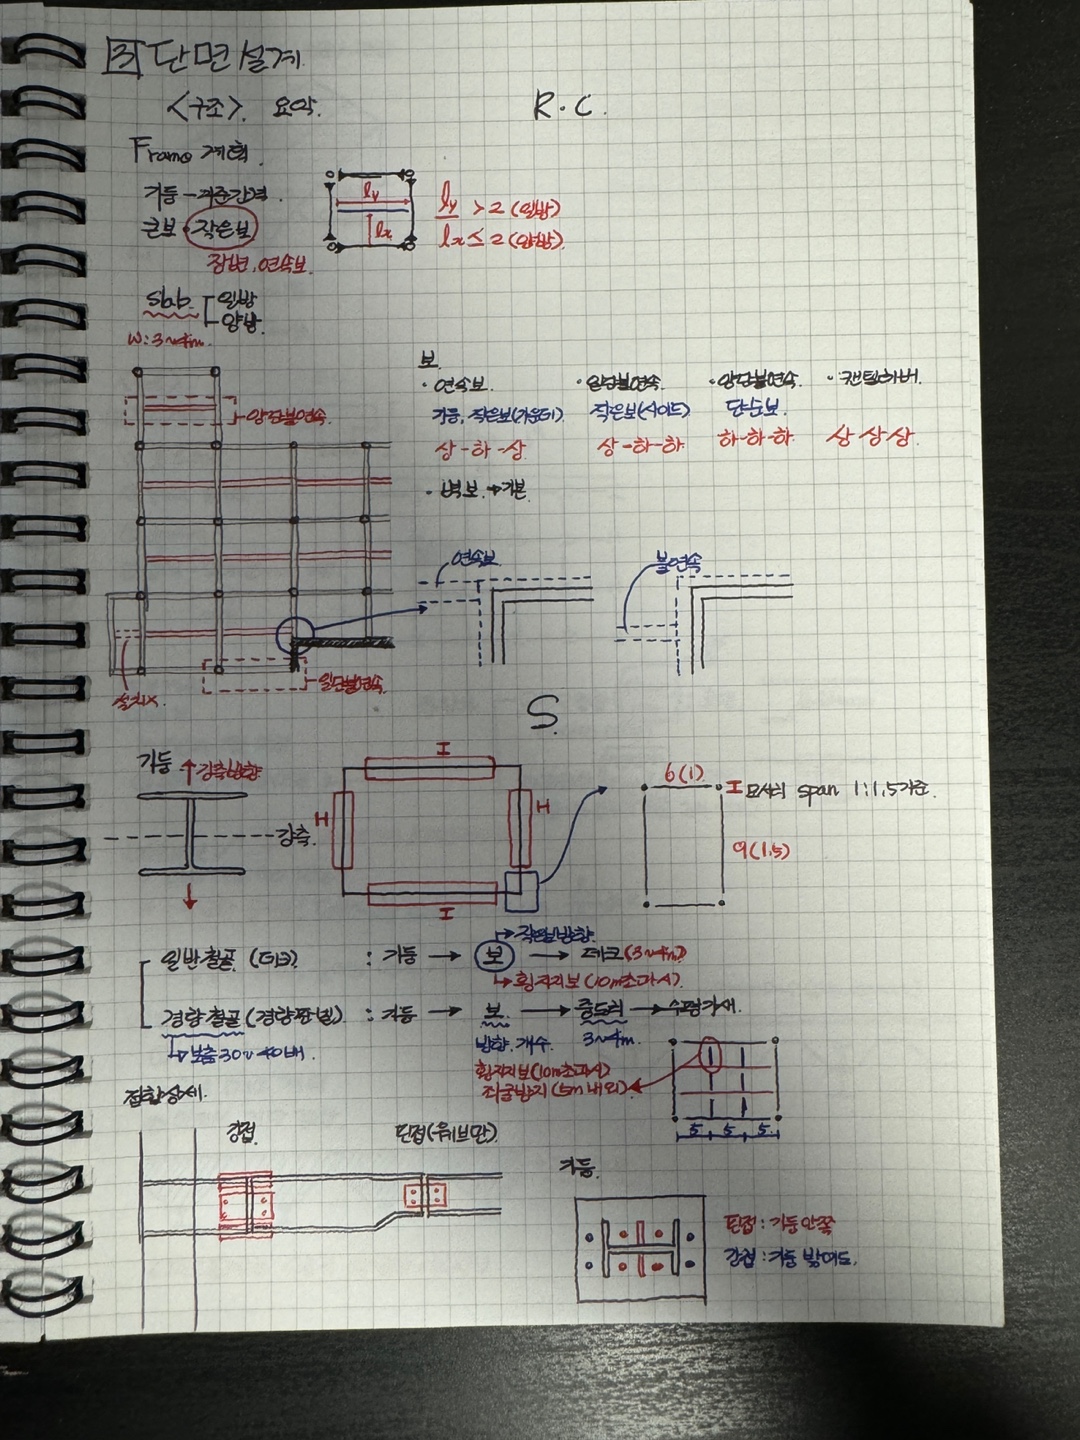 3 단면설계
<구조> 요약
R·C.
Frame 계획.
기둥 - 기준간격.
큰보·작은보
장변, 연속보.
ly
lx
ly/lx > 2 (일방)
≤ 2 (양방)
slab. 일방
양방.
W: 3~4m.
양단불연속.
보.
· 연속보.
· 일단불연속.
· 양단불연속.
· 캔틸레버.
기둥, 작은보(가운데)
작은보(사이드)
단순보.
상-하-상
상-하-하
하-하-하
상 상 상.
· 벽보 → 기본.
연속보.
불연속
설치X.
일단불연속.
S.
기둥
강축방향
강축.
I
H
H
I
6(1)
I 모서리 span 1:1.5 기준.
9(1.5)
작은보방향.
일반철골 (데크) : 기둥 → 보 → 데크(3~4m)
횡좌지보(10m초과시)
경량철골(경량판넬) : 기둥 → 보 → 중도리 → 수평가새.
보춤 30~40배.
방향, 개수.
3~4m.
횡좌지보(10m초과시)
좌굴방지(5m 내외)
5 5 5
접합상세.
강접.
핀접(웨브만)
기둥.
핀접 : 기둥 안쪽
강접 : 기둥 밖에도.